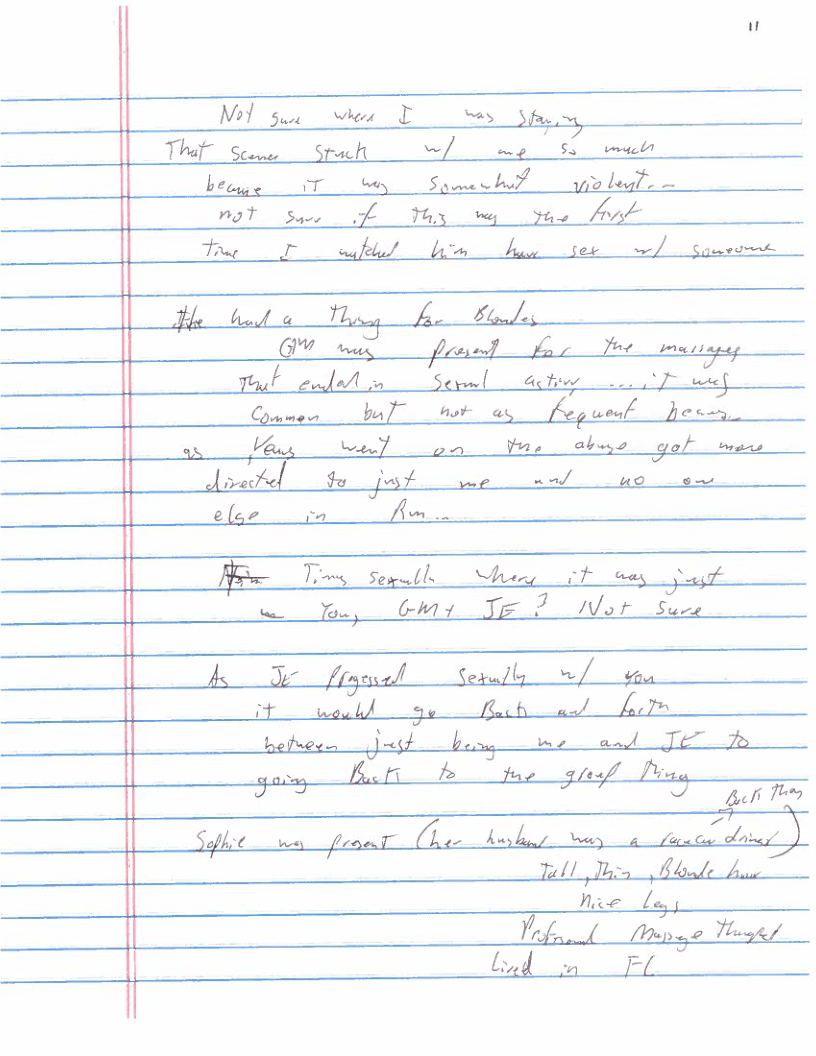 11
Not sure where I was staying
That scene stuck w/ me so much
because it was somewhat violent. -
not sure if this was the first
time I watched him have sex w/ someone
He had a thing for Blondes
GM was present for the massages
that ended in sexual activity .... it was
Common but not as frequent becaus
as years went on the abuse got more
directed to just me and no one
else in Rm ...
Times sexually where it was just
You, GM + JE? Not sure
As JE Progressed Sexually w/ you
it would go Back and forth
between just being me and JE to
going Back to the group thing
Back then
Sophie was present (her husband was a racecar driver)
Tall, Thin, Blonde hair
Nice legs
Professional Massage Therapist
Lived in FL